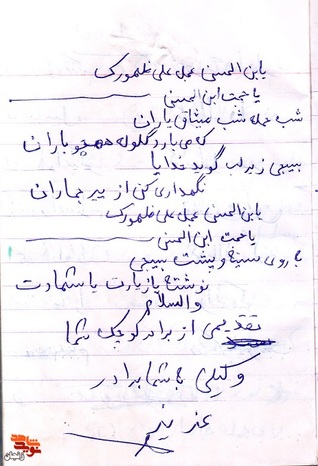 یابن الحسن عجل علی ظهورک
یا حجت ابن الحسن
شب حمله شب میثاق یاران
که می بارد گلوله همچو باران
بسیجی زیر لب گوید خدایا
نگهداری کن از پیر جماران
یابن الحسن عجل علی ظهورک
یا حجت ابن الحسن
به روی سینه و پشت بسیجی
نوشته یا زیارت یا شهادت
والسلام
تقدیمی از برادر کوچک شما
وکیلی به شما برادر
عزیز
نوید شاهد